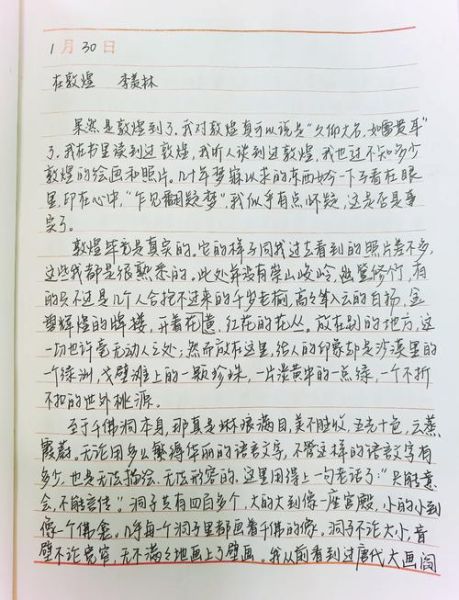 1月30日
在敦煌 季羡林
果然是敦煌到了。我对敦煌真可以说是“久仰大名,如雷贯耳”
了。我在书里读到过敦煌,我听人谈到过敦煌,我也过不知多少
敦煌的绘画和照片。几十年梦寐以来的东西如今一下子看在眼
里,印在心中,“乍见翻疑梦”,我似乎有点怀疑,这是否是事
实了。
敦煌毕竟是真实的。它的样子同我过去看到的照片差不多,
这些我都是很熟悉的。此处并没有崇山峻岭,幽篁修竹,有
的只不过是几人合抱不过来的千岁老榆,高高耸入云的白杨,金
碧辉煌的牌楼,开着花、红花的花丛。放在别的地方,这
一切也许毫无动人之处;然而放在这里,给人的印象却是沙漠里的
一个绿洲,戈壁滩上的一颗珍珠,一片淡黄中的一点绿,一个不折
不扣的世外桃源。
至于千佛洞本身,那真是琳琅满目,美不胜收,五光十色,云蒸
霞蔚。无论用多么繁缛华丽的语言文字,不管这样的语言文字有
多少,也是无法描绘,无法形容的。这里用得上一句老话了:“只能意
会,不能言传”。洞子共有四百多个,大的大到像一座宫殿,小的小到
像一个佛龛。几乎每一个洞子里都画着千佛的像。洞子不论大小,音
壁不论宽窄,无不满满地画上了壁画。我从前看到过唐代大画阎